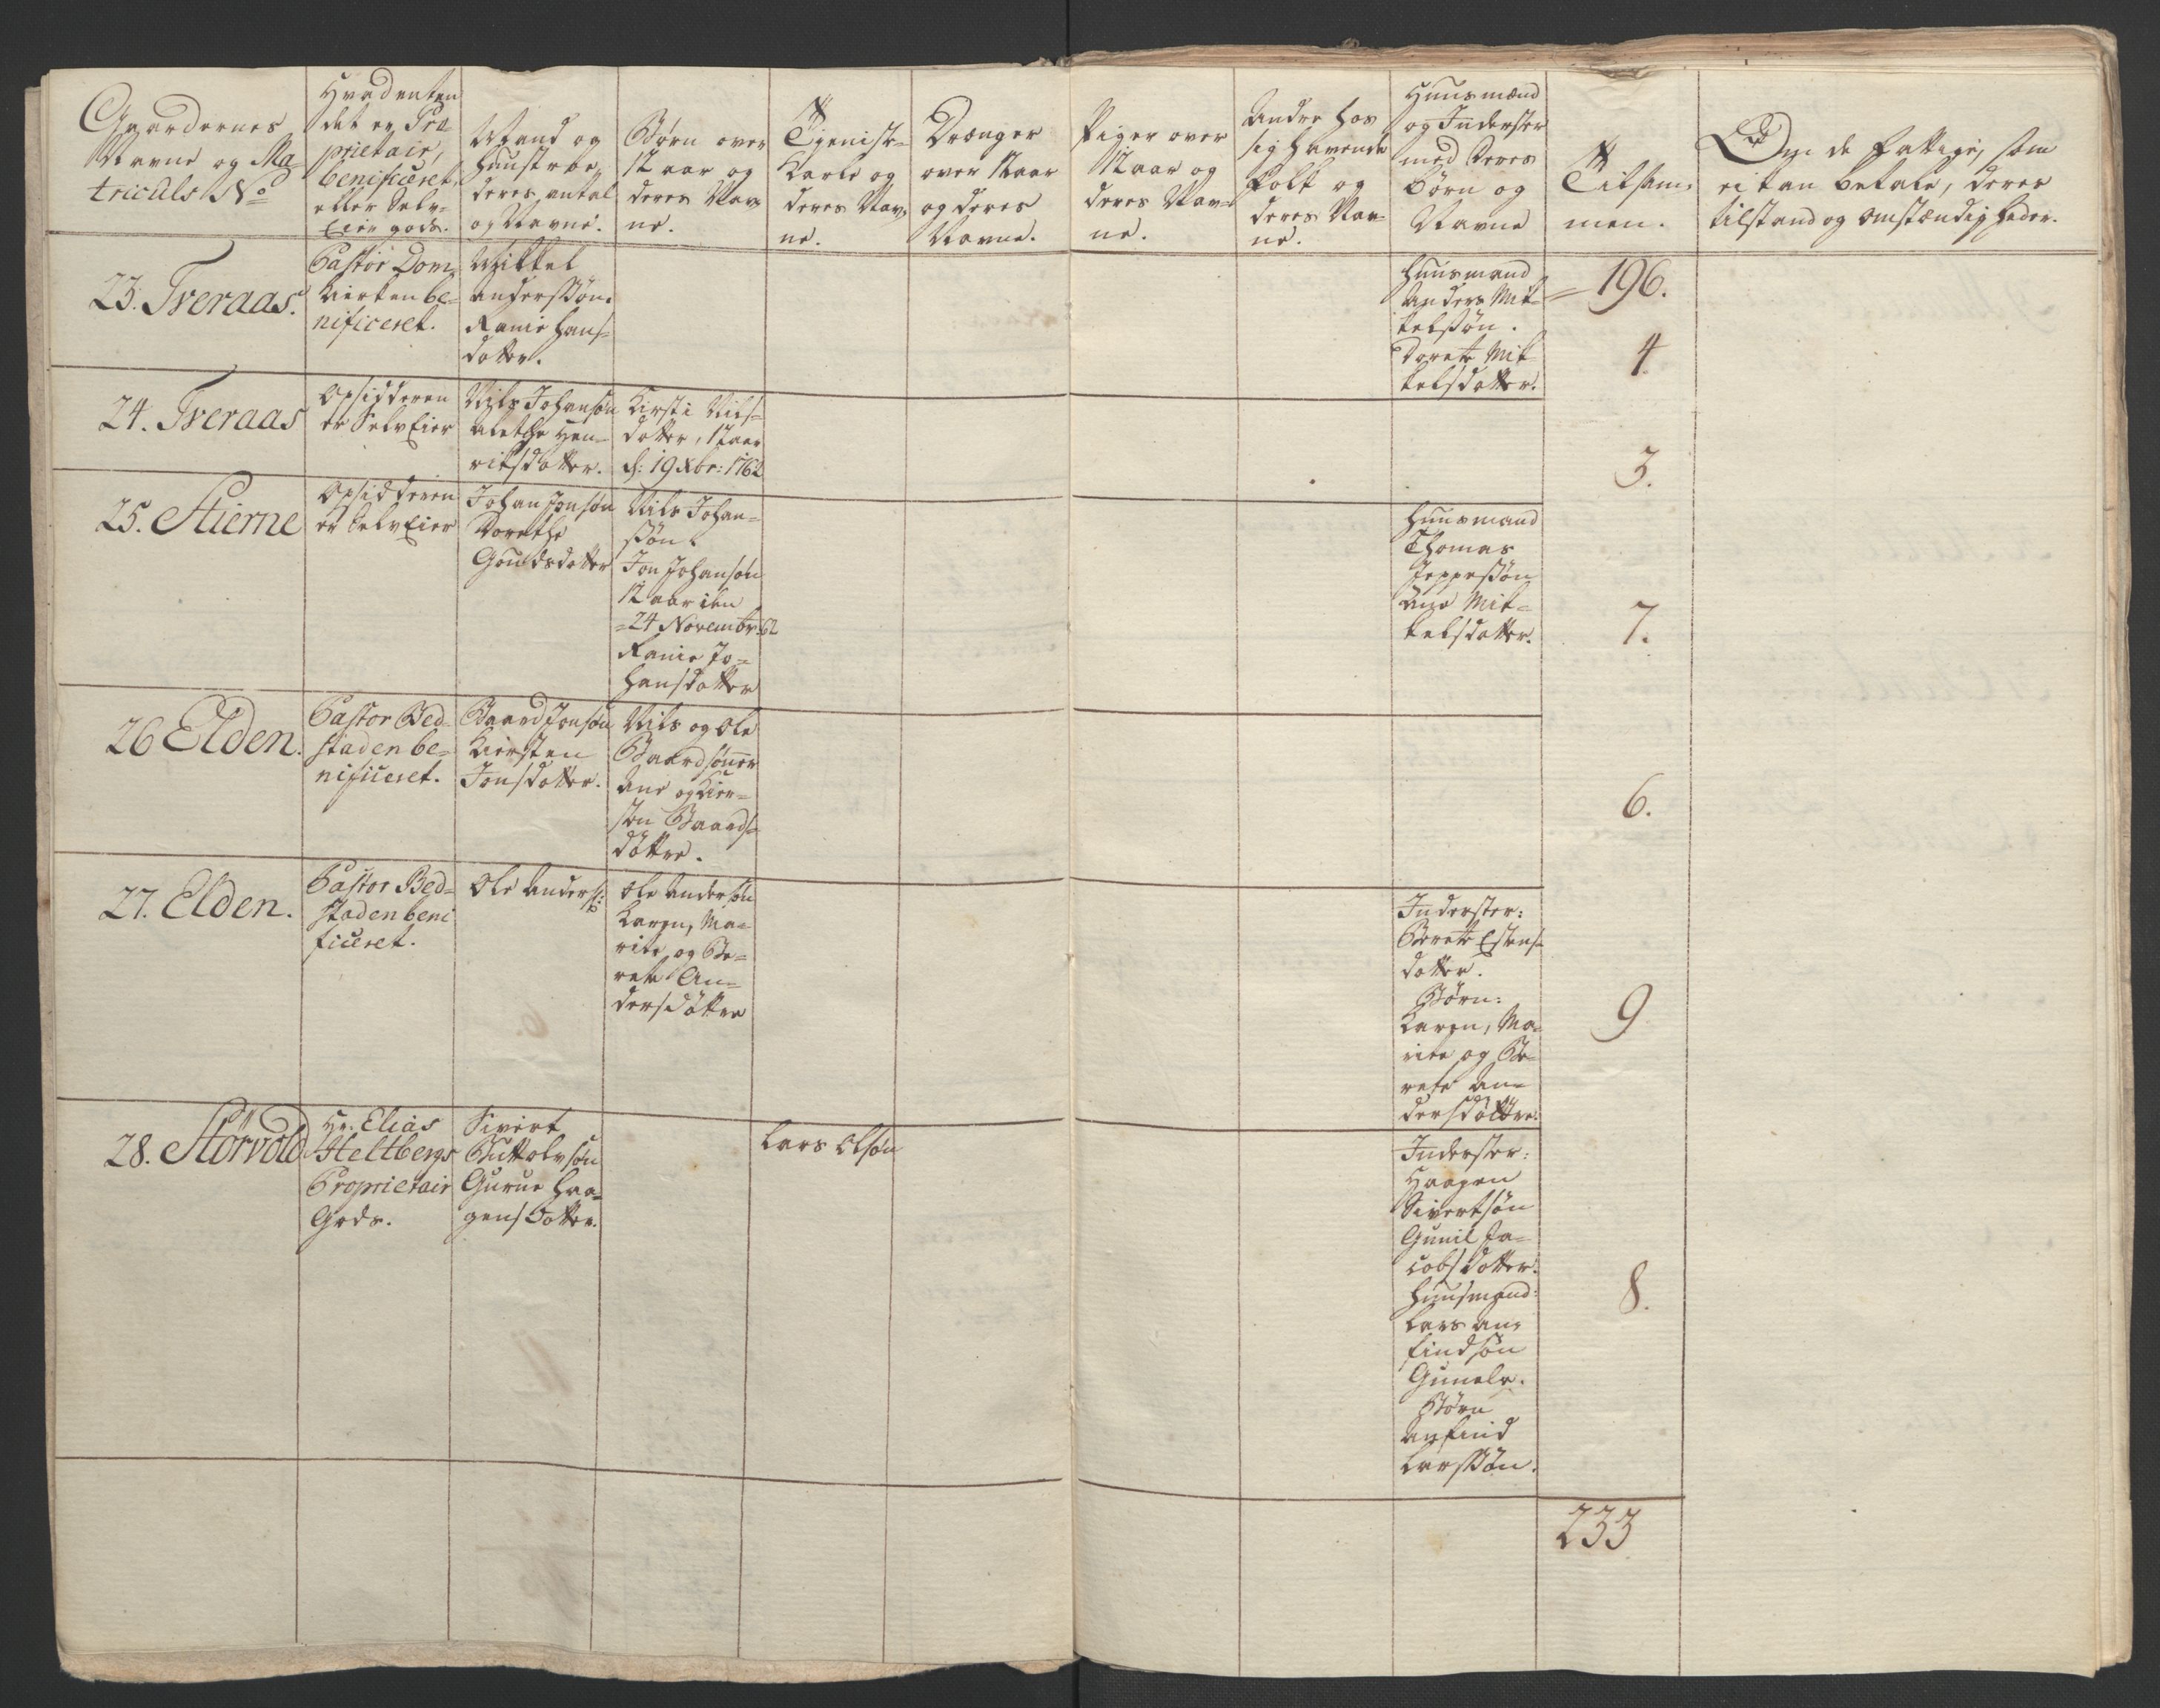 Gaardernes
Navne og Ma-
triculs No
Hvad enten
det er Pro
prietair,
benificeret,
eller Selv-
Eier gods.
Mand og
Huustrue,
deres antal
og Navne.
Børn over
12 aar og
deres Nav-
ne.
Tieniste-
Karle og
deres Nav-
ne.
Drænger
over 12 aar
og deres
Navne.
Piger over
12 aar og
deres Nav-
ne.
Andre hos
sig havende
Folk og
deres Nav-
ne.
Huusmænd
og Inderster
med Deres
børn og
Navne
Tilsam-
men.
Om de Fattige, som
ei kan betale, deres
tilstand og omstændigheder.
23. Tveraas.
Pastor Dom-
kirken be-
nificeret.
Mikkel
Anderssøn.
Ranie Hans-
dotter.
Huusmand
Anders Mik-
kelssøn.
Dorete Mik
kelsdotter.
= 196.
4.
24. Tveraas
Opsidderen
er SelvEier
Niels Johansøn
Alethe Hen-
riksdotter.
Kirsti Nils-
dotter, 12 aar
d: 19 Xbr: 1762
3.
25. Stierne
Opsidderen
er SelvEier
Johan Jonsøn
Dorethe
Gouldsdotter
Nils Johan-
søn.
Jon Johansøn
12 aar den
24 Novembr: 62
Ranie Jo-
hansdotter
Huusmand
Thomas
Jeppesøn
Ane Mik-
kelsdotter.
7.
26 Elden.
Pastor Bed-
staden be-
nificeret.
Baard Jonsøn
Kiersten
Jonsdotter.
Nils og Ole
Baardsønner
Ane og Kier-
sten Baards-
døttre.
6.
27. Elden.
Pastor Bed-
staden beni
ficeret.
Ole Anders:
Ole Andersøn
Karen, Ma-
rite og Be-
rete An-
dersdøttre
Inderster:
Berete Estens-
dotter.
Børn:
Karen, Ma-
rite og Be-
rete An-
dersdøttre.
9
28. Størvold
Hr. Elias
Heltbergs
Proprietair
Gods.
Sivert
Buttolvsøn
Gurue Haa-
gensdotter.
Lars Olsøn
Inderster:
Haagen
Sivertsøn
Gunil Ja-
cobsdotter.
Huusmand:
Lars An-
findsøn
Gunele.
Børn
Anfind
Larssøn.
8.
233